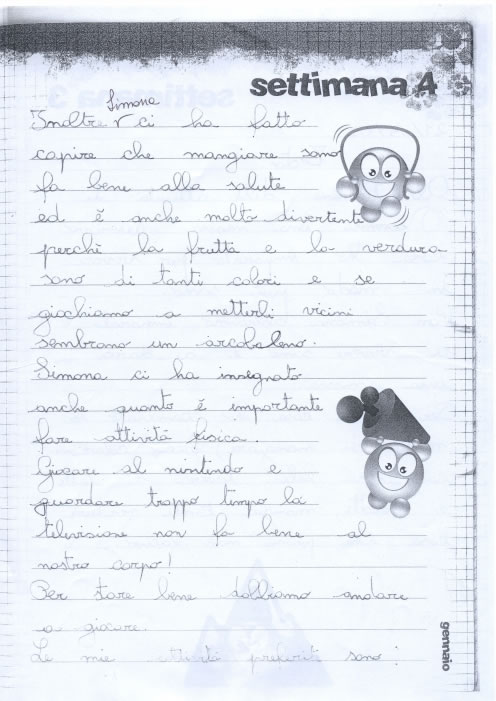 settimana 4
Simona
Inoltre ci ha fatto
capire che mangiare sano
fa bene alla salute
ed è anche molto divertente
perchè la frutta e la verdura
sono di tanti colori e se
giochiamo a metterli vicini
sembrano un arcobaleno.
Simona ci ha insegnato
anche quanto è importante
fare attività fisica.
Giocare al nintendo e
guardare troppo tempo la
televisione non fa bene al
nostro corpo!
Per stare bene dobbiamo andare
a giocare.
Le mie attività preferite sono:
gennaio